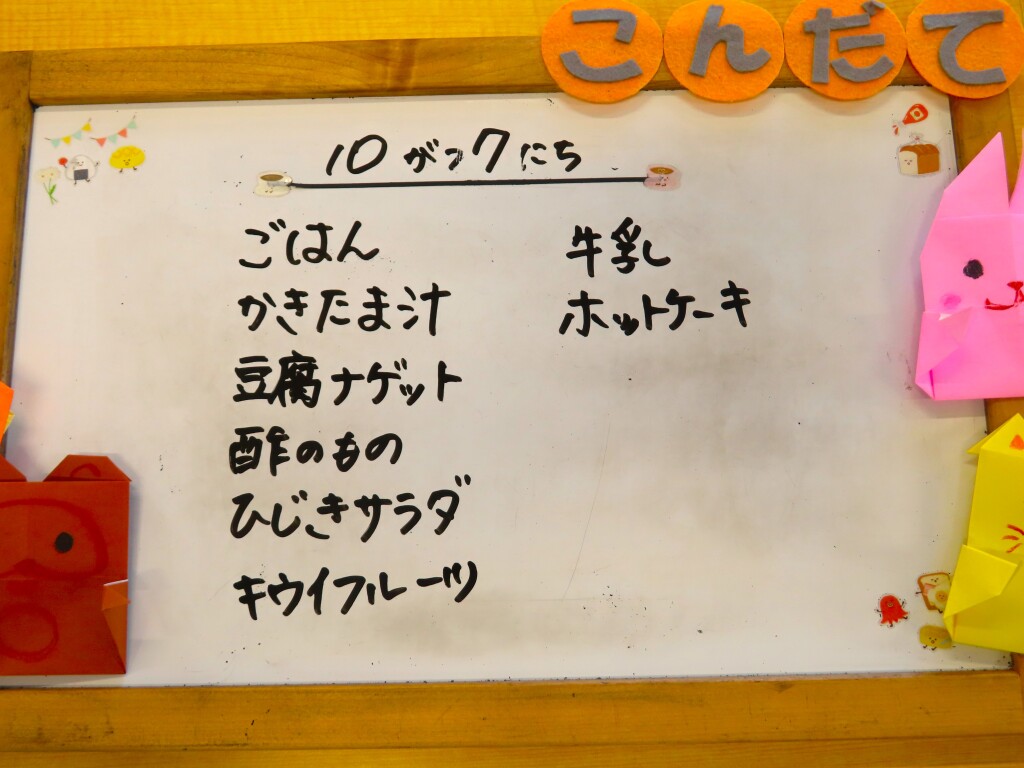 こんだて
10がつ7にち
ごはん
かきたま汁
豆腐ナゲット
酢のもの
ひじきサラダ
キウイフルーツ
牛乳し
ホットケーキ